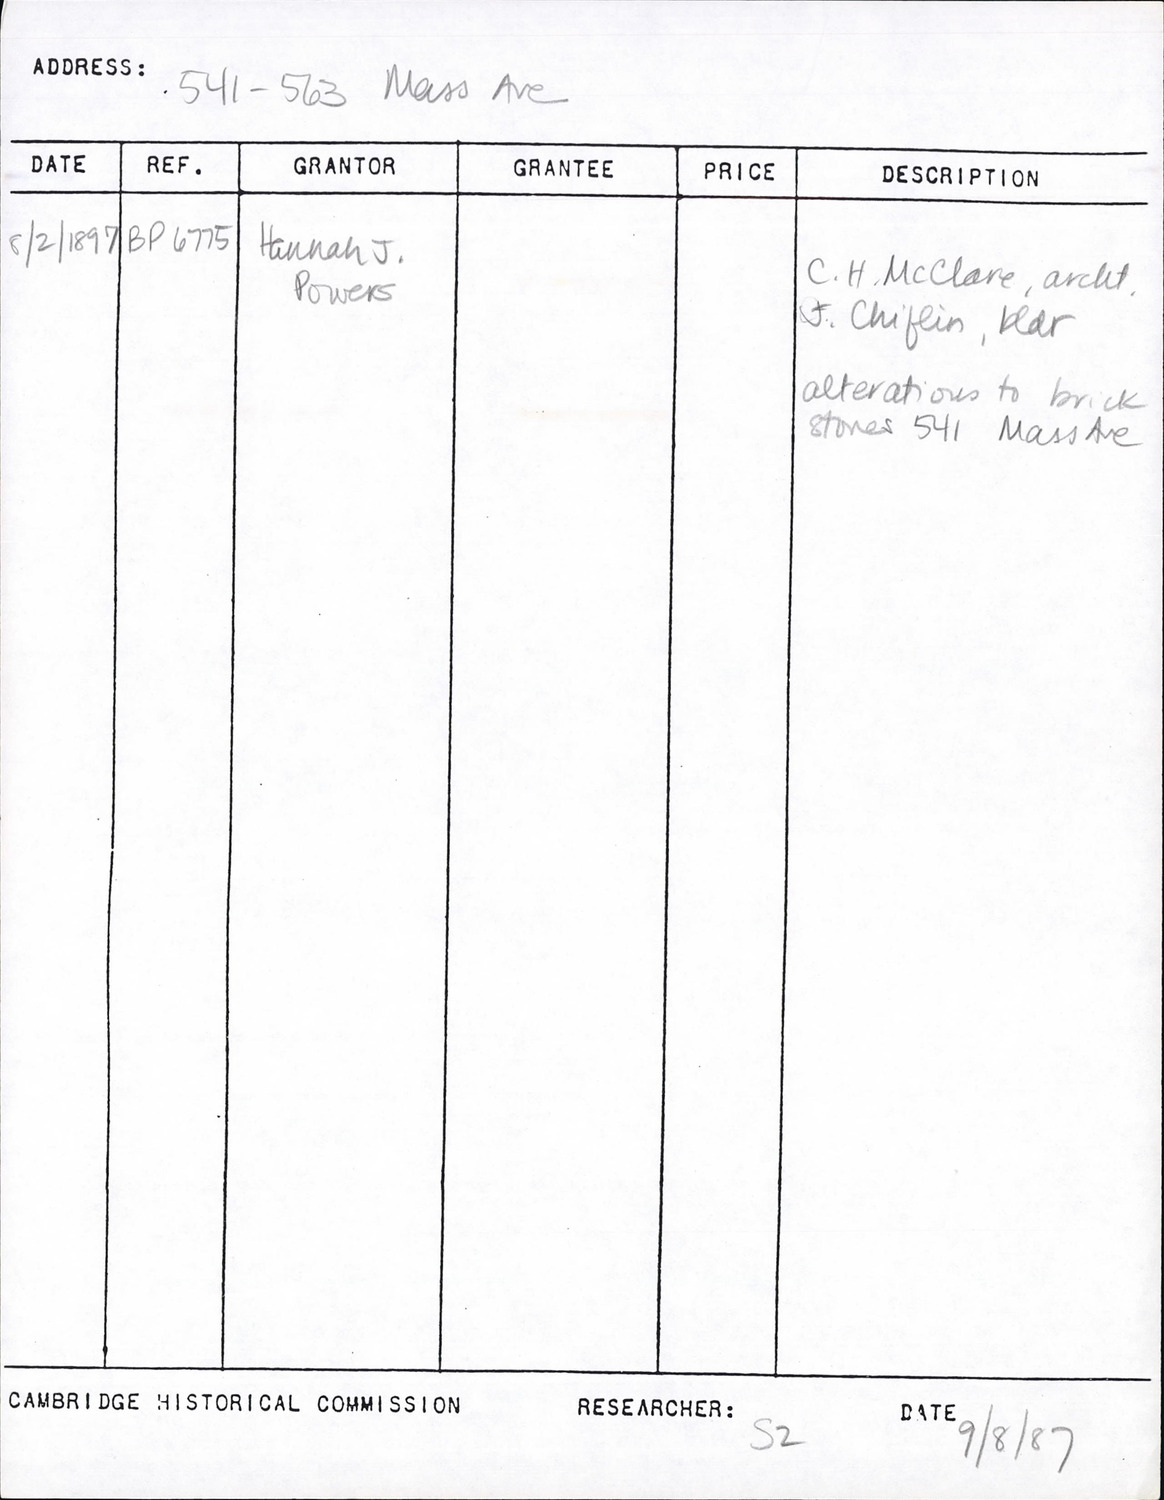 ADDRESS: 541-563 Mass Ave
DATE REF. GRANTOR GRANTEE PRICE DESCRIPTION
8/2/1897 BP 6775 Hannah J.
Powers
C. H. McClare, archt.
J. Chiflin, bldr
alterations to brick
stores 541 Mass Ave
CAMBRIDGE HISTORICAL COMMISSION RESEARCHER: SZ DATE 9/8/87